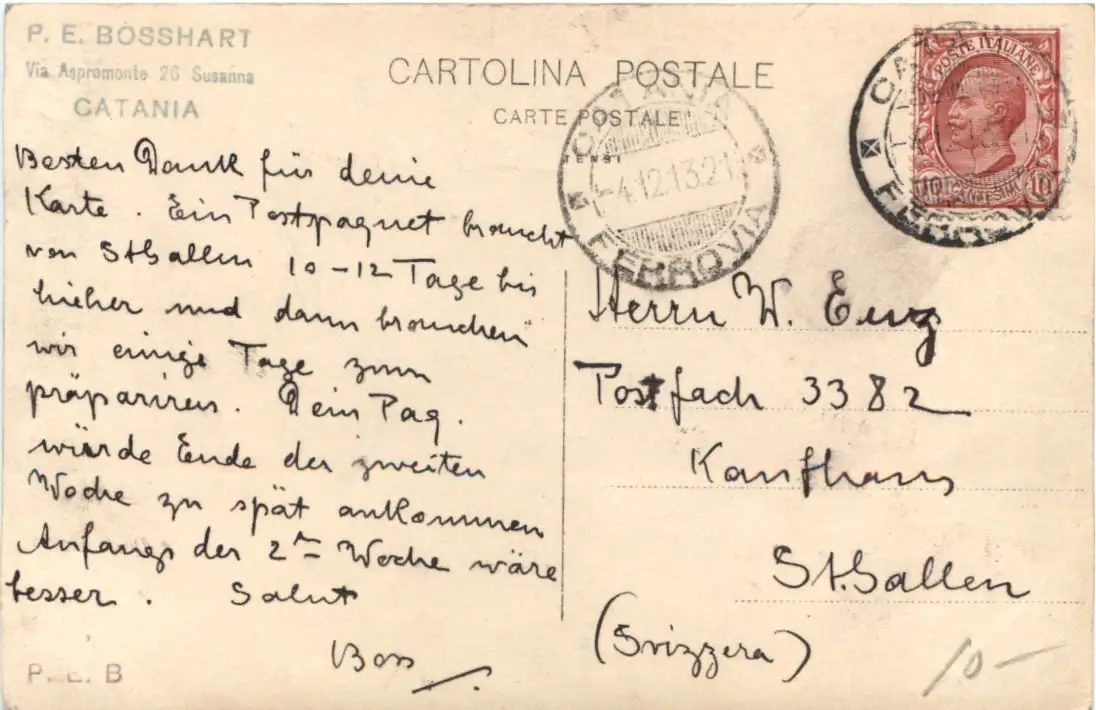 P. E. BOSSHART
Via Aspromonte 26 Susanna
CATANIA
CARTOLINA POSTALE
CARTE POSTALE
CATANIA
4.12.13.21
FERROVIA
POSTE ITALIANE
10
10
FERROVIA
Besten Dank für deine
Karte. Ein Postpaquet braucht
von St.Gallen 10-12 Tage bis
hieher und dann brauchen
wir einige Tage zum
präpariren. Dein Paq.
würde Ende der zweiten
Woche zu spät ankommen
Anfangs der 2ten Woche wäre
besser. Salut
Boss
P. E. B
Herrn W. Enz
Postfach 3382
Kaufhaus
St.Gallen
(Svizzera)
10-